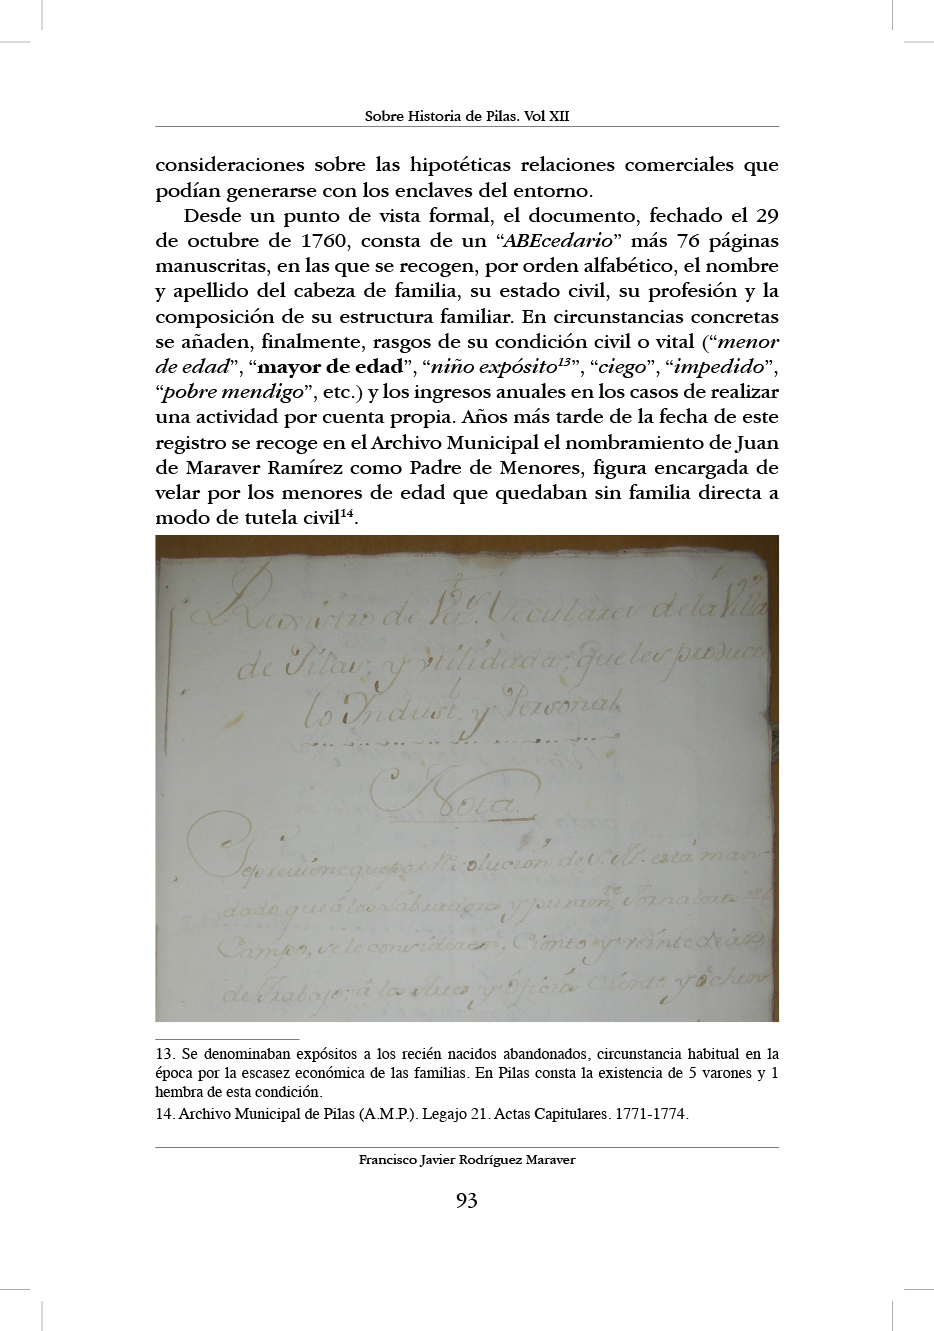 Sobre Historia de Pilas. Vol XII
consideraciones sobre las hipotéticas relaciones comerciales que
podían generarse con los enclaves del entorno.
Desde un punto de vista formal, el documento, fechado el 29
de octubre de 1760, consta de un “ABEcedario” más 76 páginas
manuscritas, en las que se recogen, por orden alfabético, el nombre
y apellido del cabeza de familia, su estado civil, su profesión y la
composición de su estructura familiar. En circunstancias concretas
se añaden, finalmente, rasgos de su condición civil o vital (“menor
de edad”, “mayor de edad”, “niño expósito13”, “ciego”, “impedido”,
“pobre mendigo”, etc.) y los ingresos anuales en los casos de realizar
una actividad por cuenta propia. Años más tarde de la fecha de este
registro se recoge en el Archivo Municipal el nombramiento de Juan
de Maraver Ramírez como Padre de Menores, figura encargada de
velar por los menores de edad que quedaban sin familia directa a
modo de tutela civil14.
de la Villa
de Pilas, y utilidades, que les produce
lo Indust.l y Personal
Nota.
que por Resolución de S. M. está man-
dado, que á los Labradores y puram.te Jornaleros del
Campo, se le consideren, Ciento y veinte dias
de Trabajo; á los Artes y Oficios Ciento y ochen
13. Se denominaban expósitos a los recién nacidos abandonados, circunstancia habitual en la
época por la escasez económica de las familias. En Pilas consta la existencia de 5 varones y 1
hembra de esta condición.
14. Archivo Municipal de Pilas (A.M.P.). Legajo 21. Actas Capitulares. 1771-1774.
Francisco Javier Rodríguez Maraver
93